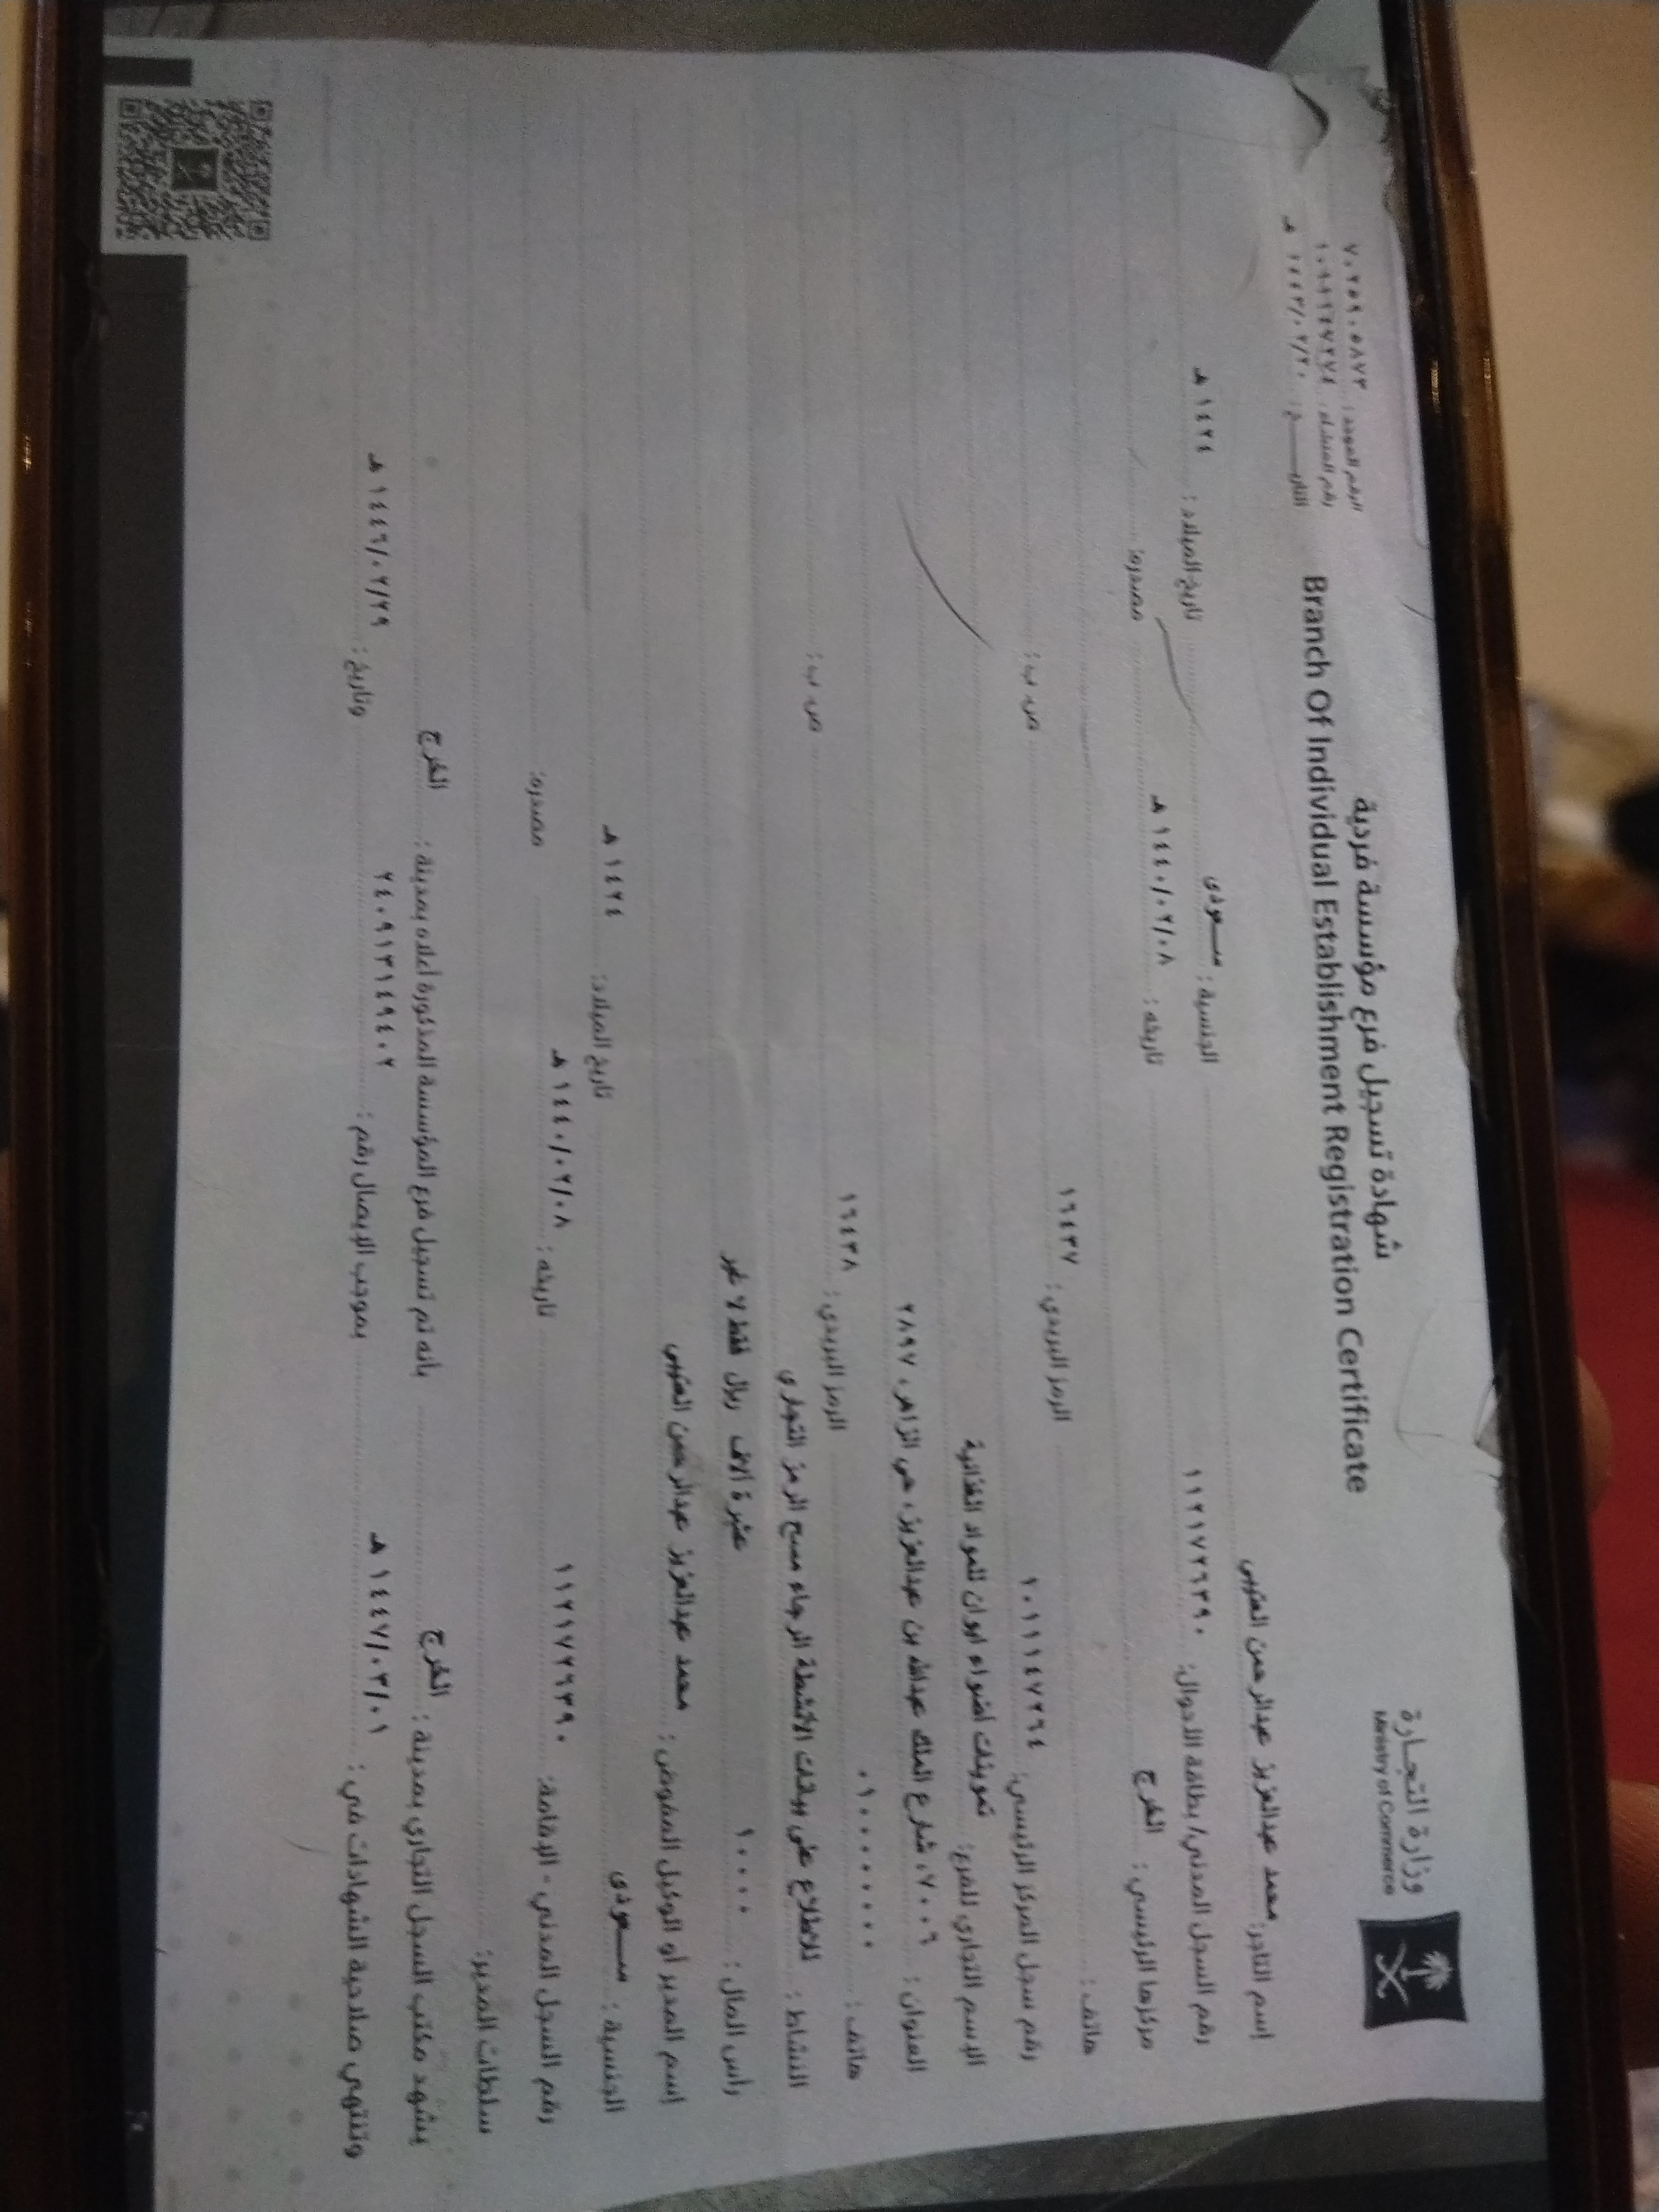 وزارة التجارة
Ministry of Commerce
شهادة تسجيل فرع مؤسسة فردية
Branch Of Individual Establishment Registration Certificate
الرقم الموحد : ٧٠٢٥٩٠٥٨٧٣
رقم المنشأة :
التاريـــخ : ١٤٤٣/٠٢/٢٠ هـ
إسم التاجر: محمد عبدالعزيز عبدالرحمن العتيبي
رقم السجل المدني/ بطاقة الأحوال: ١١٢١٧٢٦٣٩٠ الجنسية : سعودى تاريخ الميلاد : ١٤٢٤ هـ
مركزها الرئيسي : الخرج تاريخه : ١٤٤٠/٠٢/٠٨ هـ مصدره:
هاتف :
رقم سجل المركز الرئيسي: ١٠١١١٤٧٢٩٤ الرمز البريدي : ١٦٤٣٧ ص. ب :
الإسم التجاري للفرع: تموينات اضواء ايوان للمواد الغذائية
العنوان : ٧٠٠٦، شارع الملك عبدالله بن عبدالعزيز، حي الزاهر، ٢٨٩٧
هاتف : ٠٩٠٠٠٠٠٠٠ الرمز البريدي : ١٦٤٣٨ ص. ب :
النشاط : للاطلاع على بيانات الأنشطة الرجاء مسح الرمز التجاري
رأس المال : ١٠٠٠٠ عشرة آلاف ريال فقط لا غير
إسم المدير أو الوكيل المفوض : محمد عبدالعزيز عبدالرحمن العتيبي
الجنسية : سعودى تاريخ الميلاد: ١٤٢٤ هـ
رقم السجل المدني - الإقامة: ١١٢١٧٢٦٣٩٠ تاريخه : ١٤٤٠/٠٢/٠٨ هـ مصدره:
سلطات المدير:
يشهد مكتب السجل التجاري بمدينة : الخرج بأنه تم تسجيل فرع المؤسسة المذكورة أعلاه بمدينة : الخرج
وتنتهي صلاحية الشهادات في : ١٤٤٧/٠٣/٠١ هـ بموجب الإيصال رقم : ٢٤٠٩١٣١٤٩٤٠٢ وتاريخ : ١٤٤٦/٠٢/٢٩ هـ